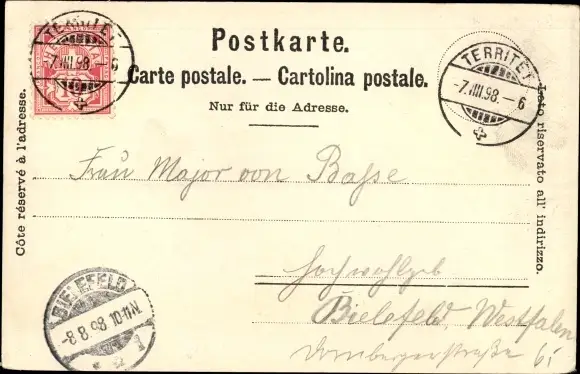 TERRITET
-7.VIII.98.-6
Postkarte.
Carte postale. — Cartolina postale.
Nur für die Adresse.
TERRITET
-7.VIII.98.-6
Côte réservé à l'adresse.
Lato riservato all' indirizzo.
Frau Major von Basse
Hochwohlgeb
Bielefeld, Westfalen
BIELEFELD
-8.8.98 10-11N
1